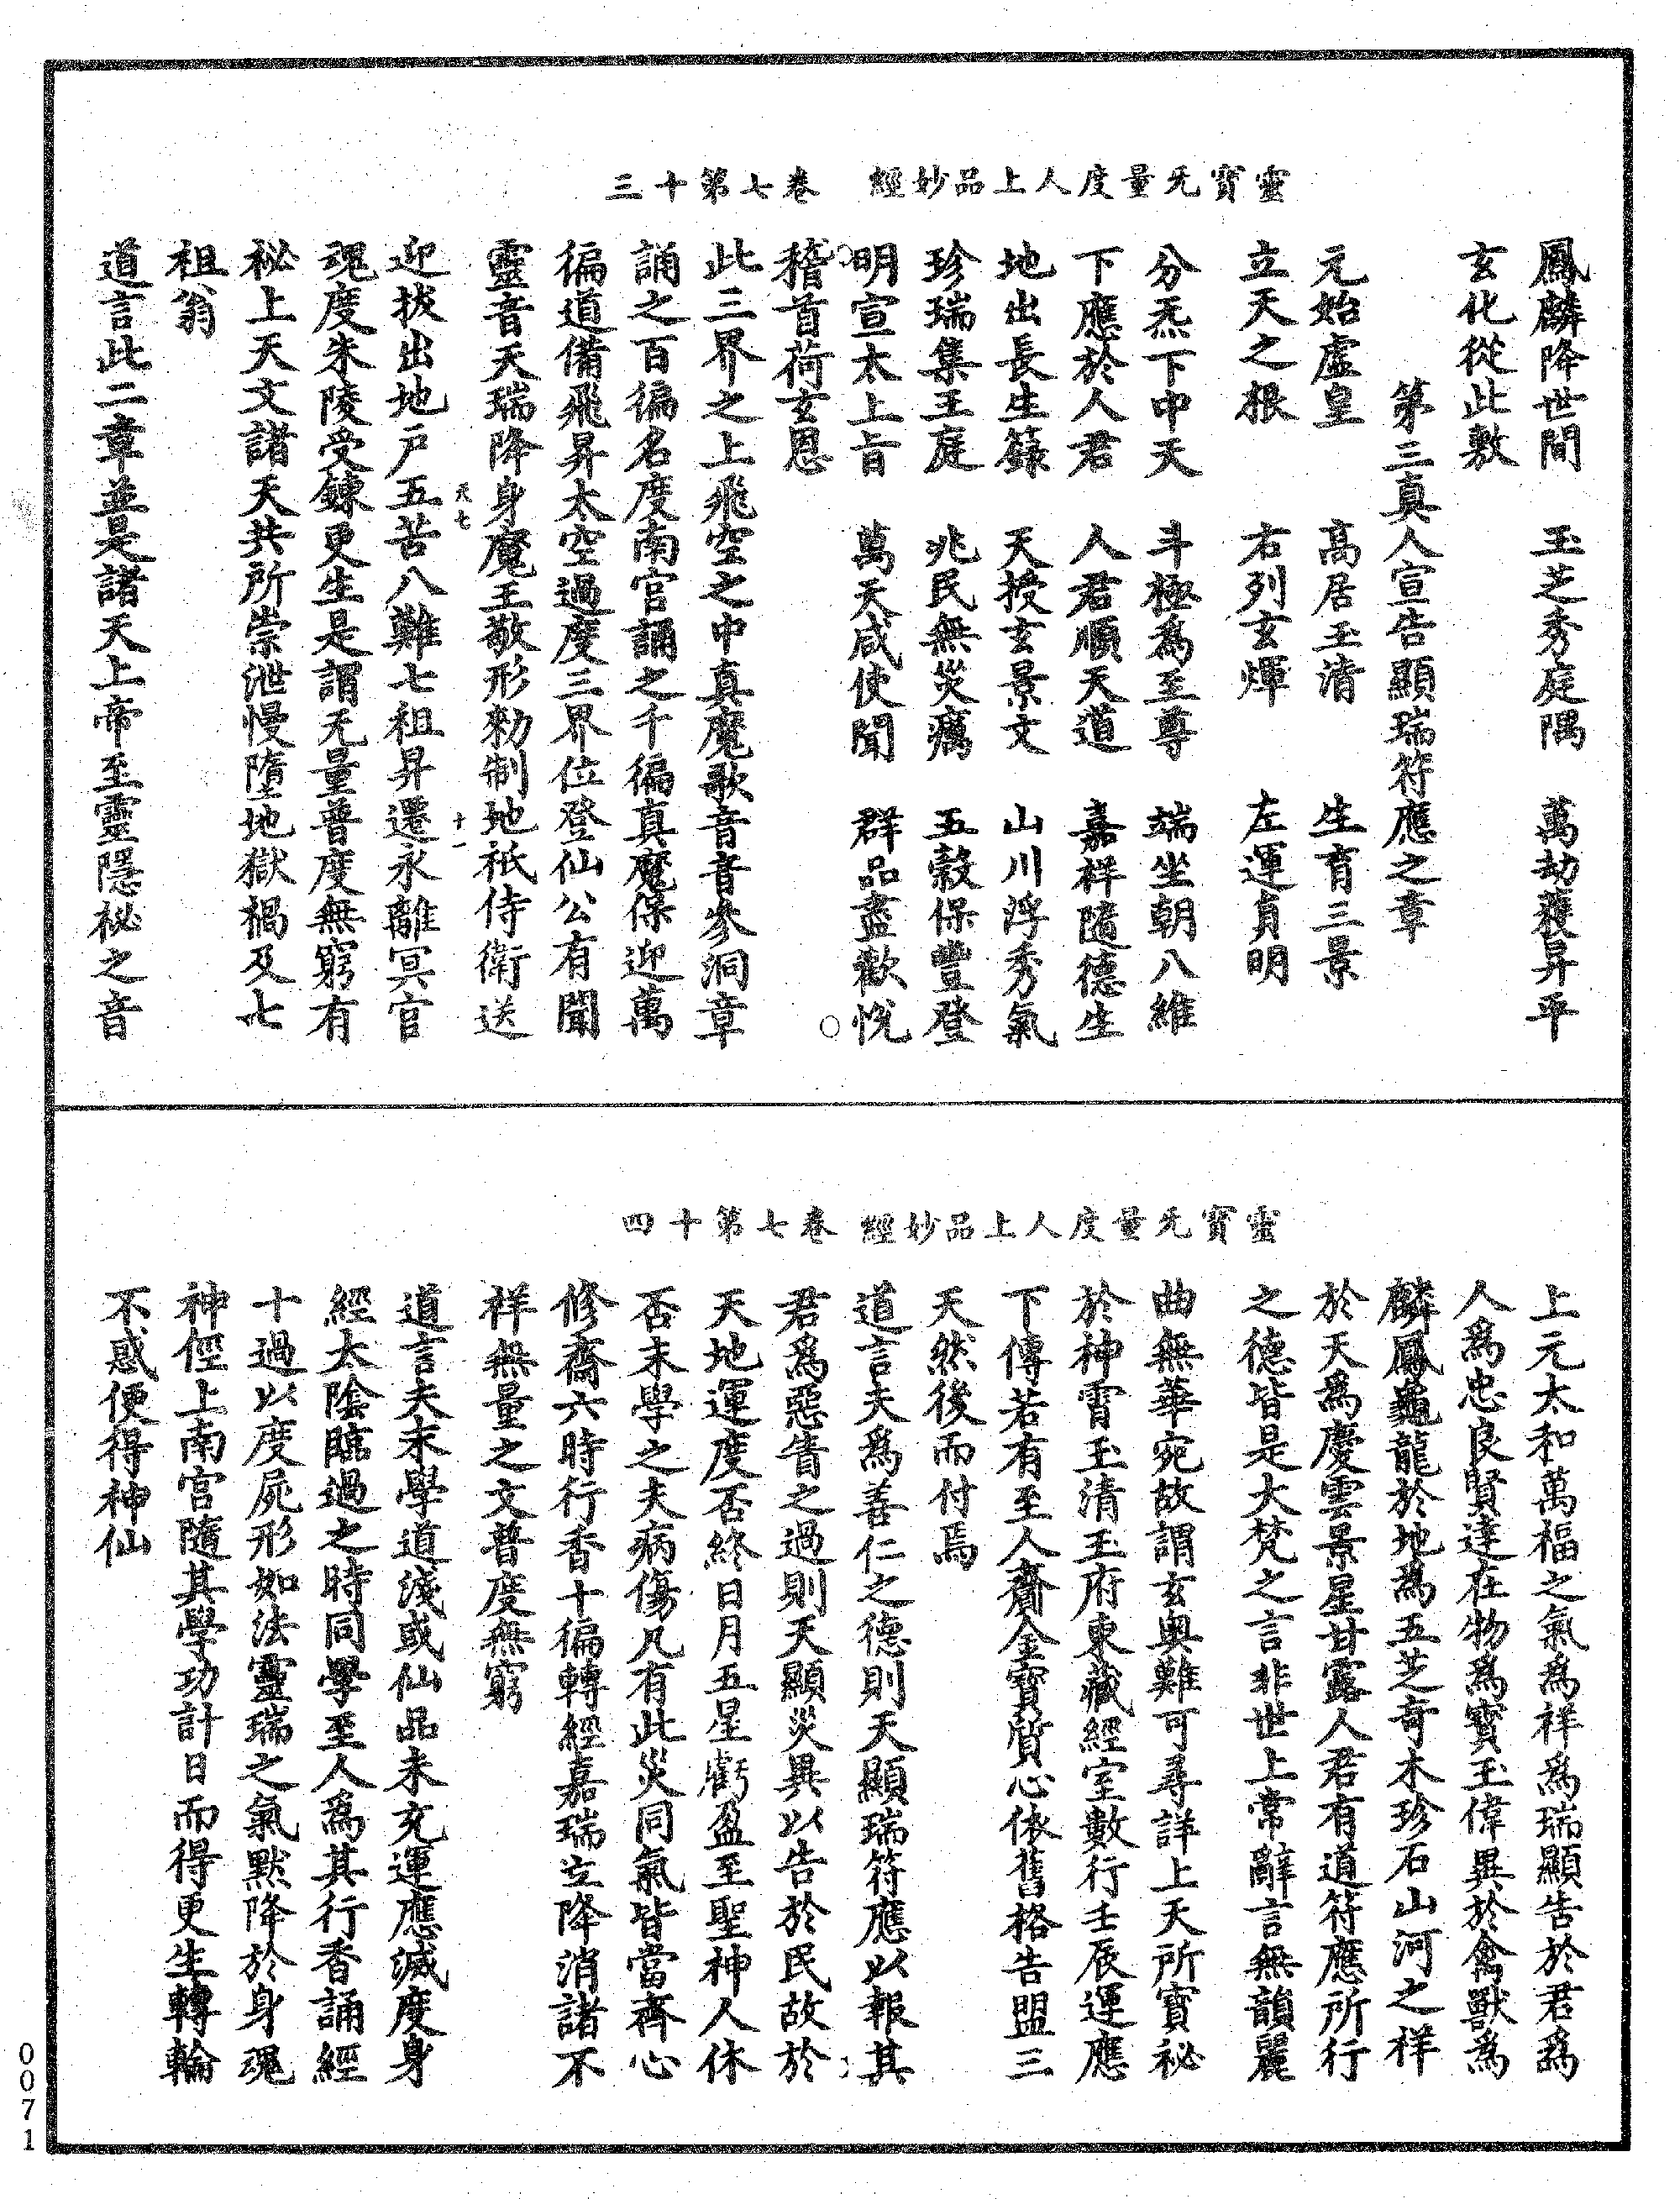 靈寶无量度人上品妙經　卷七第十三
鳳麟降世間　玉芝秀庭隅　萬劫獲昇平
玄化從此敷
第三真人宣告顯瑞符應之章
元始虛皇　高居玉清　生育三景
立天之根　右列玄燡　左運貞明
分炁下中天　斗極為至尊　端坐朝八維
下應於人君　人君順天道　嘉祥隨德生
地出長生籙　天授玄景文　山川浮秀氣
珍瑞集王庭　兆民無災癘　五穀保豐登
明宣太上旨　萬天咸使聞　群品盡歡悅
稽首荷玄恩　○
此三界之上飛空之中真魔歌音音參洞章
誦之百徧名度南宮誦之千徧真魔保迎萬
徧道備飛昇太空過度三界位登仙公有聞
靈音天瑞降身魔王敬形勑制地祇侍衛送
天七　十一
迎拔出地戶五苦八難七祖昇遷永離冥官
魂度朱陵受鍊更生是謂无量普度無窮有
秘上天文諸天共所崇泄慢墮地獄禍及七
祖翁
道言此二章並是諸天上帝至靈隱祕之音
靈寶无量度人上品妙經　卷七第十四
上元太和萬福之氣為祥為瑞顯告於君為
人為忠良賢達在物為寶玉偉異於禽獸為
麟鳳龜龍於地為五芝奇木珍石山河之祥
於天為慶雲景星甘露人君有道符應所行
之德皆是大梵之言非世上常辭言無韻麗
曲無華宛故謂玄奧難可尋詳上天所寶祕
於神霄玉清王府東藏經室數行壬辰運應
下傳若有至人齎金寶質心依舊格告盟三
天然後而付焉
道言夫為善仁之德則天顯瑞符應以報其
君為惡眚之過則天顯災異以告於民故於
天地運度否終日月五星虧盈至聖神人休
否末學之夫病傷凡有此災同氣皆當齊心
修齋六時行香十徧轉經嘉瑞立降消諸不
祥無量之文普度無窮
道言夫末學道淺或仙品未充運應滅度身
經太陰臨過之時同學至人為其行香誦經
十過以度屍形如法靈瑞之氣默降於身魂
神徑上南宮隨其學功計日而得更生轉輪
不惑便得神仙
0071